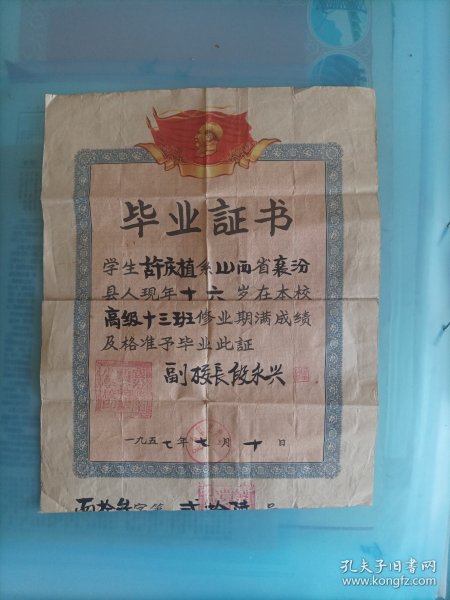 毕业証书
学生許庆植系山西省襄汾
县人现年十六岁在本校
高级十三班修业期满成绩
及格准予毕业此証
副校長段永兴
一九五七年七月十日
字第 号
孔夫子旧书网
www.kongfz.com